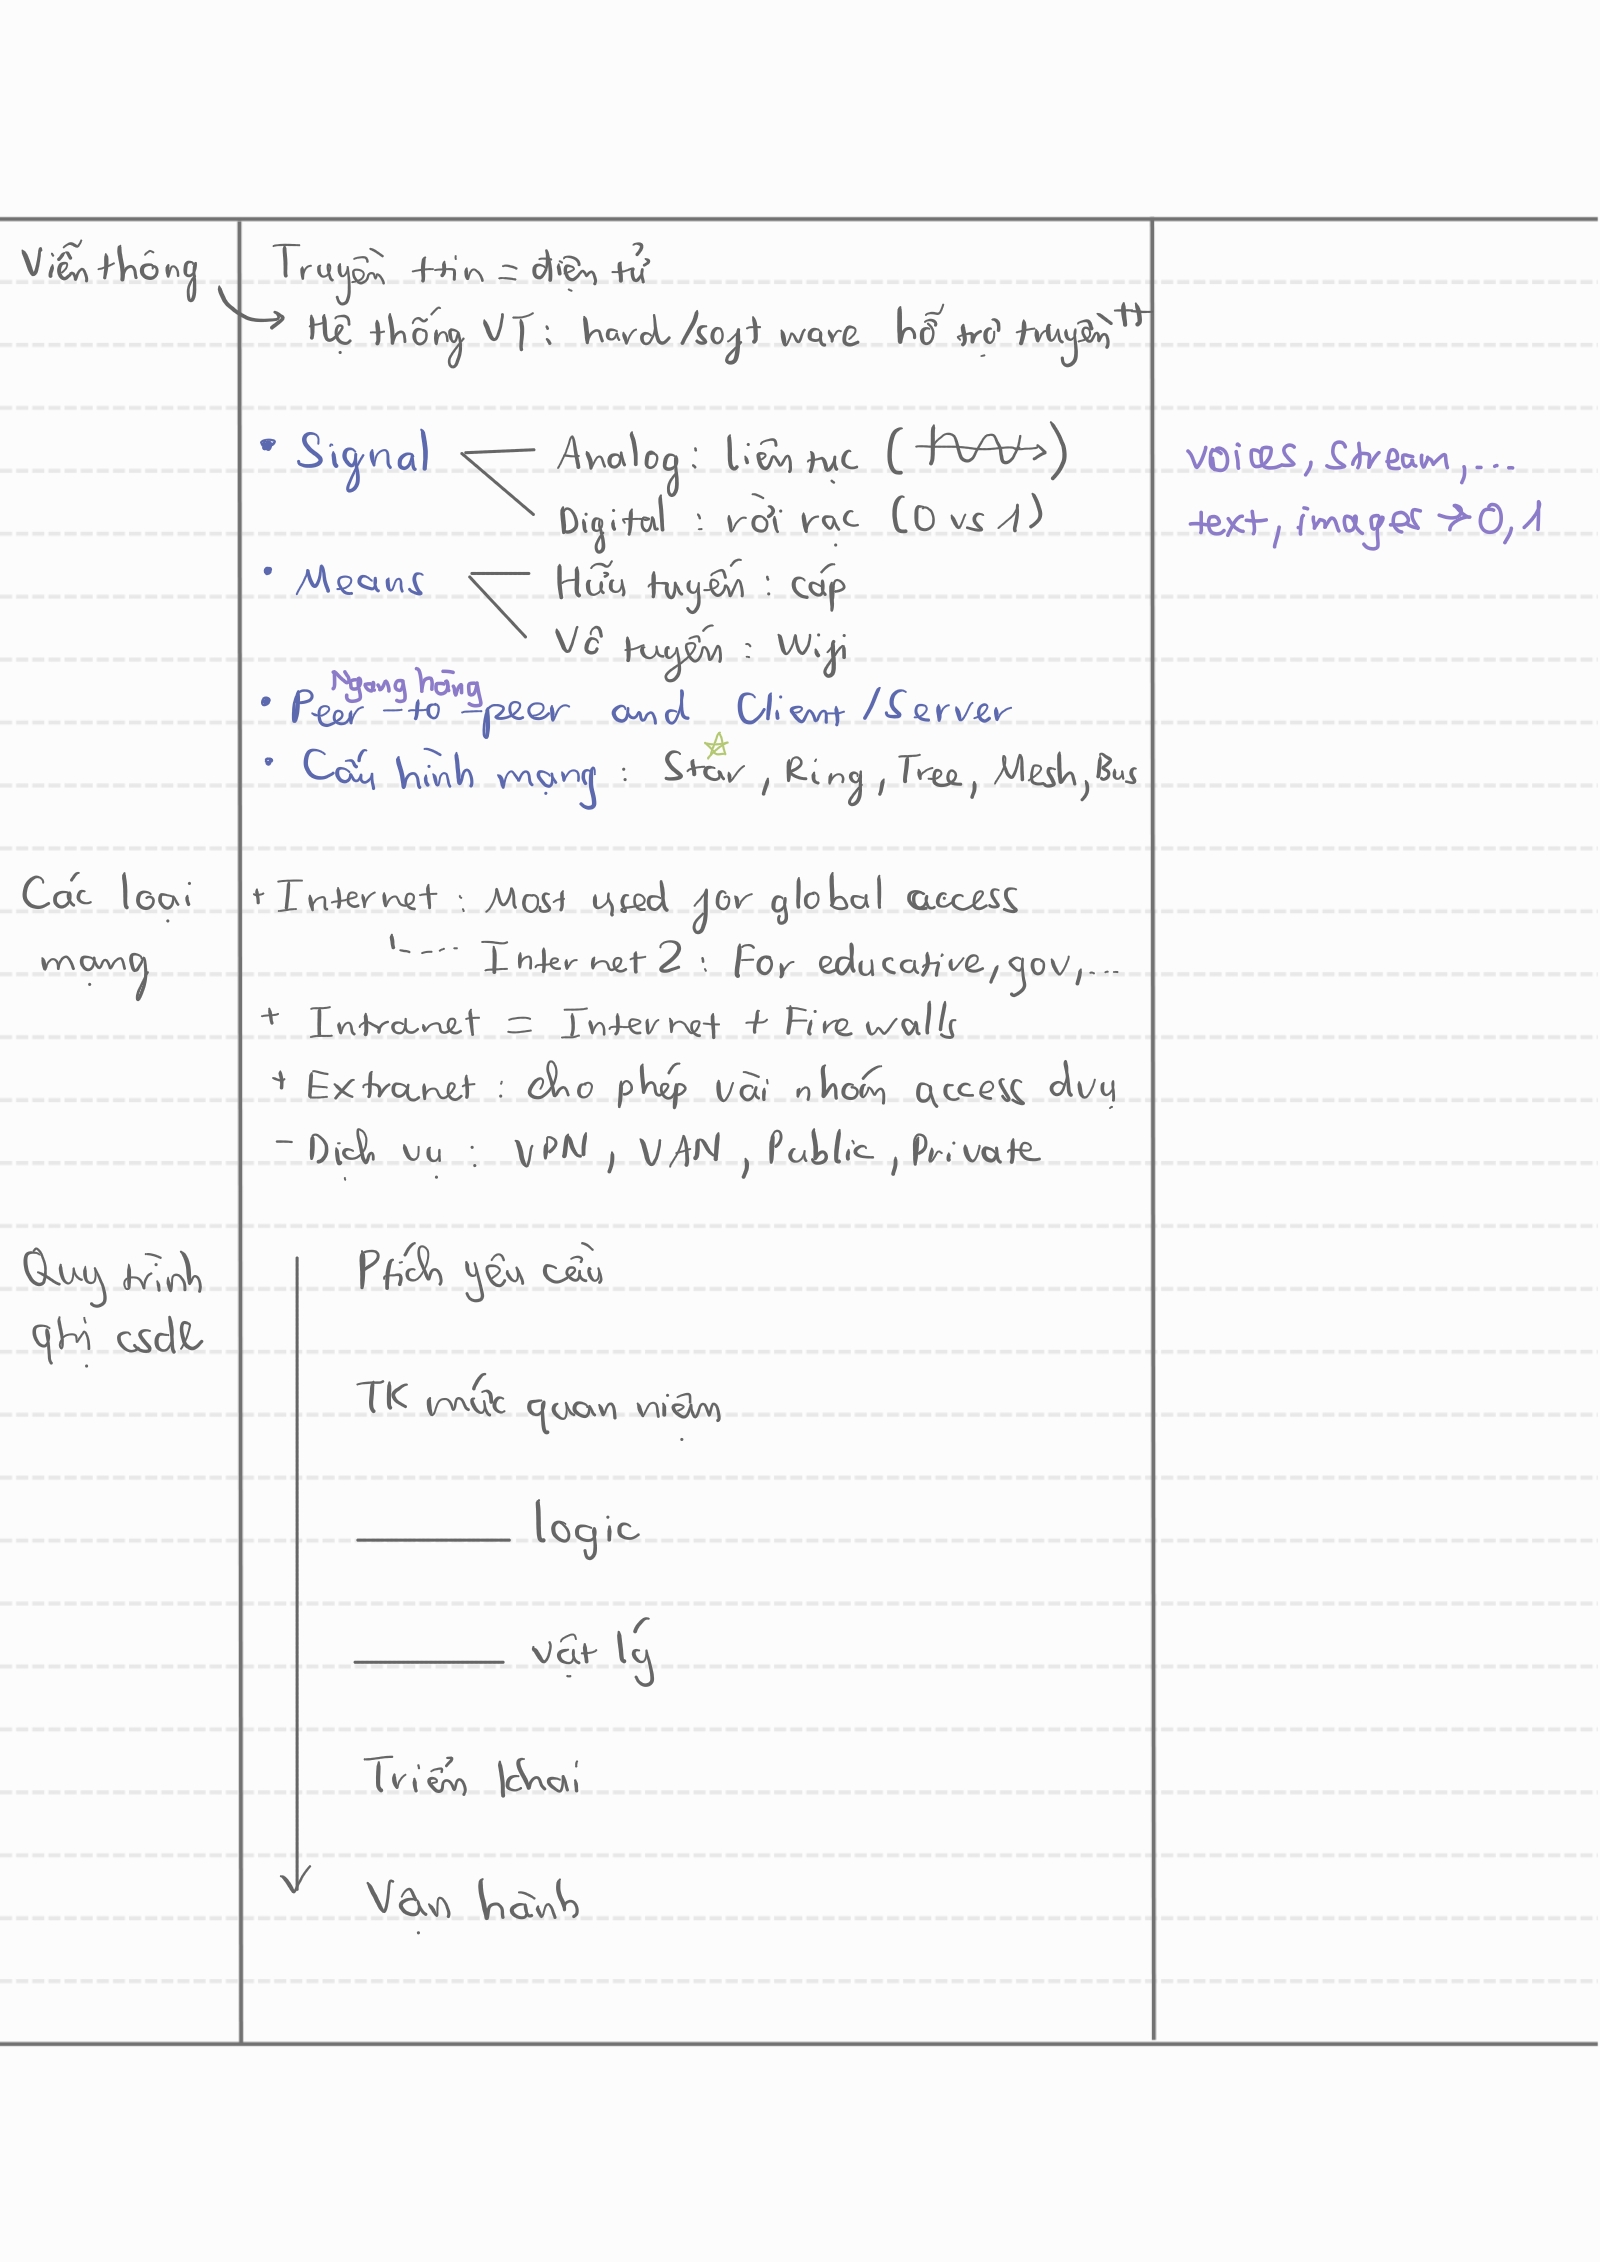 Viễn thông
Truyền ttin = điện tử
Hệ thống VT : hard/soft ware hỗ trợ truyền tt
• Signal
Analog : liên tục ( )
voices, Stream, ...
Digital : rời rạc (0 vs 1)
text, images → 0, 1
• Means
Hữu tuyến : cáp
Vô tuyến : Wifi
Ngang hàng
• Peer-to-peer and Client/Server
• Cấu hình mạng : Star, Ring, Tree, Mesh, Bus
Các loại
mạng
+ Internet : Most used for global access
Internet 2 : For educative, gov, ...
+ Intranet = Internet + Fire walls
+ Extranet : cho phép vài nhóm access dvụ
- Dịch vụ : VPN, VAN, Public, Private
Quy trình
qtrị csdl
Ptích yêu cầu
TK mức quan niệm
logic
vật lý
Triển khai
Vận hành